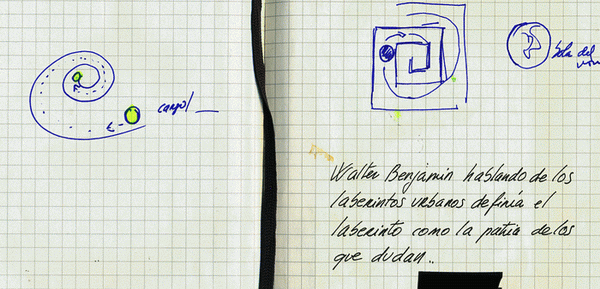 Bola del
Walter Benjamin hablando de los
laberintos urbanos definía el
laberinto como la patria de los
que dudan..